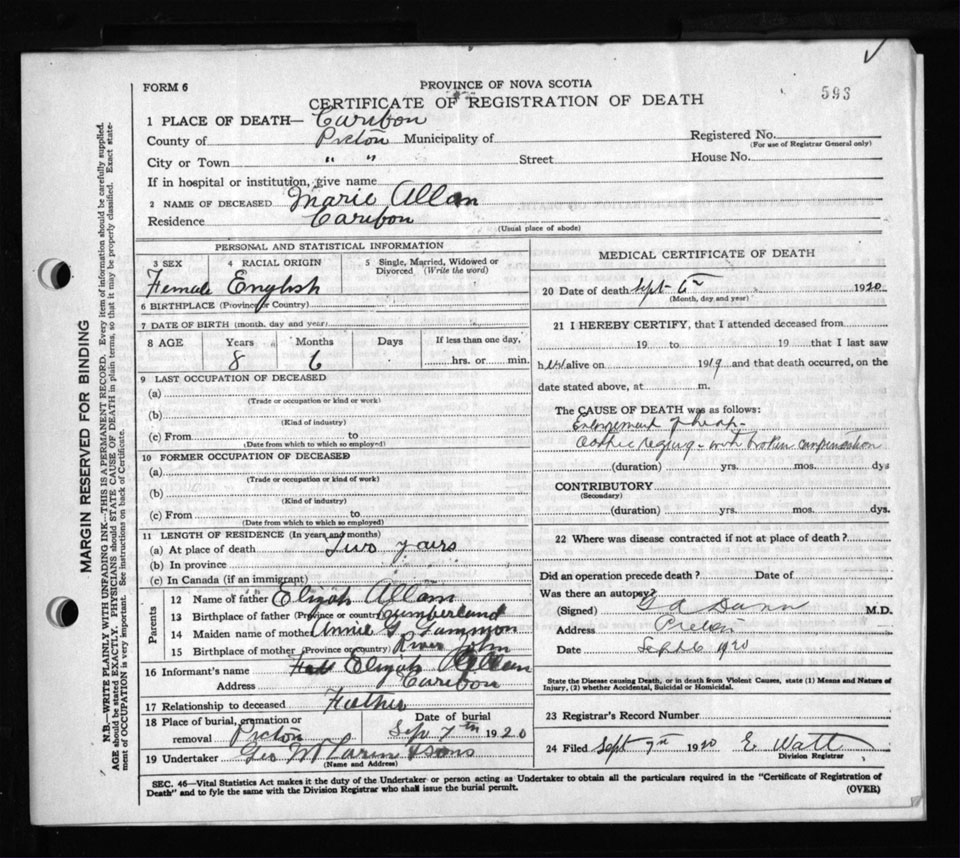 FORM 6
PROVINCE OF NOVA SCOTIA
593
CERTIFICATE OF REGISTRATION OF DEATH
1 PLACE OF DEATH— Caribou
County of Pictou Municipality of
Registered No.
(For use of Registrar General only)
City or Town " " Street House No.
If in hospital or institution, give name
2 NAME OF DECEASED Marie Allan
Residence Caribou
(Usual place of abode)
PERSONAL AND STATISTICAL INFORMATION
3 SEX 4 RACIAL ORIGIN 5 Single, Married, Widowed or Divorced (Write the word)
Female English
6 BIRTHPLACE (Province or Country)
7 DATE OF BIRTH (month, day and year)
8 AGE Years Months Days If less than one day,
8 6 hrs. or min.
9 LAST OCCUPATION OF DECEASED
(a)
(Trade or occupation or kind or work)
(b)
(Kind of industry)
(c) From to
(Date from which to which so employed)
10 FORMER OCCUPATION OF DECEASED
(a)
(Trade or occupation or kind of work)
(b)
(Kind of industry)
(c) From to
(Date from which to which so employed)
11 LENGTH OF RESIDENCE (In years and months)
(a) At place of death Two years
(b) In province
(c) In Canada (if an immigrant)
Parents
12 Name of father Elijah Allan
13 Birthplace of father (Province or country) Cumberland
14 Maiden name of mother Annie G.
15 Birthplace of mother (Province or country) River John
16 Informant's name Elijah Allan
Address Caribou
17 Relationship to deceased Father
18 Place of burial, cremation or removal Pictou
Date of burial Sep 7th 1920
19 Undertaker Geo & Sons
(Name and Address)
MEDICAL CERTIFICATE OF DEATH
20 Date of death Sept 6th 1920
(Month, day and year)
21 I HEREBY CERTIFY, that I attended deceased from
19 to 19 that I last saw
h alive on 1919 and that death occurred, on the
date stated above, at m.
The CAUSE OF DEATH was as follows:
Enlargement of heart
with broken compensation
(duration) yrs. mos. dys
CONTRIBUTORY
(Secondary)
(duration) yrs. mos. dys.
22 Where was disease contracted if not at place of death?
Did an operation precede death? Date of
Was there an autopsy?
(Signed) G A Dunn M.D.
Address Pictou
Date Sept 6 1920
State the Disease causing Death, or in death from Violent Causes, state (1) Means and Nature of
Injury, (2) whether Accidental, Suicidal or Homicidal.
23 Registrar's Record Number
24 Filed Sept 7th 1920 E Watt
Division Registrar
SEC. 46—Vital Statistics Act makes it the duty of the Undertaker or person acting as Undertaker to obtain all the particulars required in the "Certificate of Registration of
Death" and to fyle the same with the Division Registrar who shall issue the burial permit.
(OVER)
MARGIN RESERVED FOR BINDING
N.B.—WRITE PLAINLY WITH UNFADING INK—THIS IS A PERMANENT RECORD. Every item of information should be carefully supplied.
AGE should be stated EXACTLY. PHYSICIANS should STATE CAUSE OF DEATH in plain terms, so that it may be properly classified. Exact state-
ment of OCCUPATION is very important. See instructions on back of Certificate.